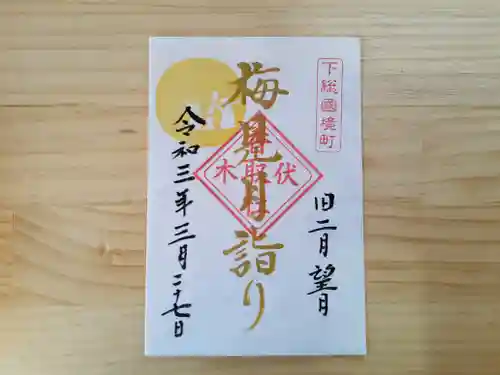 下総國境町
旧二月望月
梅見月詣り
伏木
香取
令和三年三月二十七日